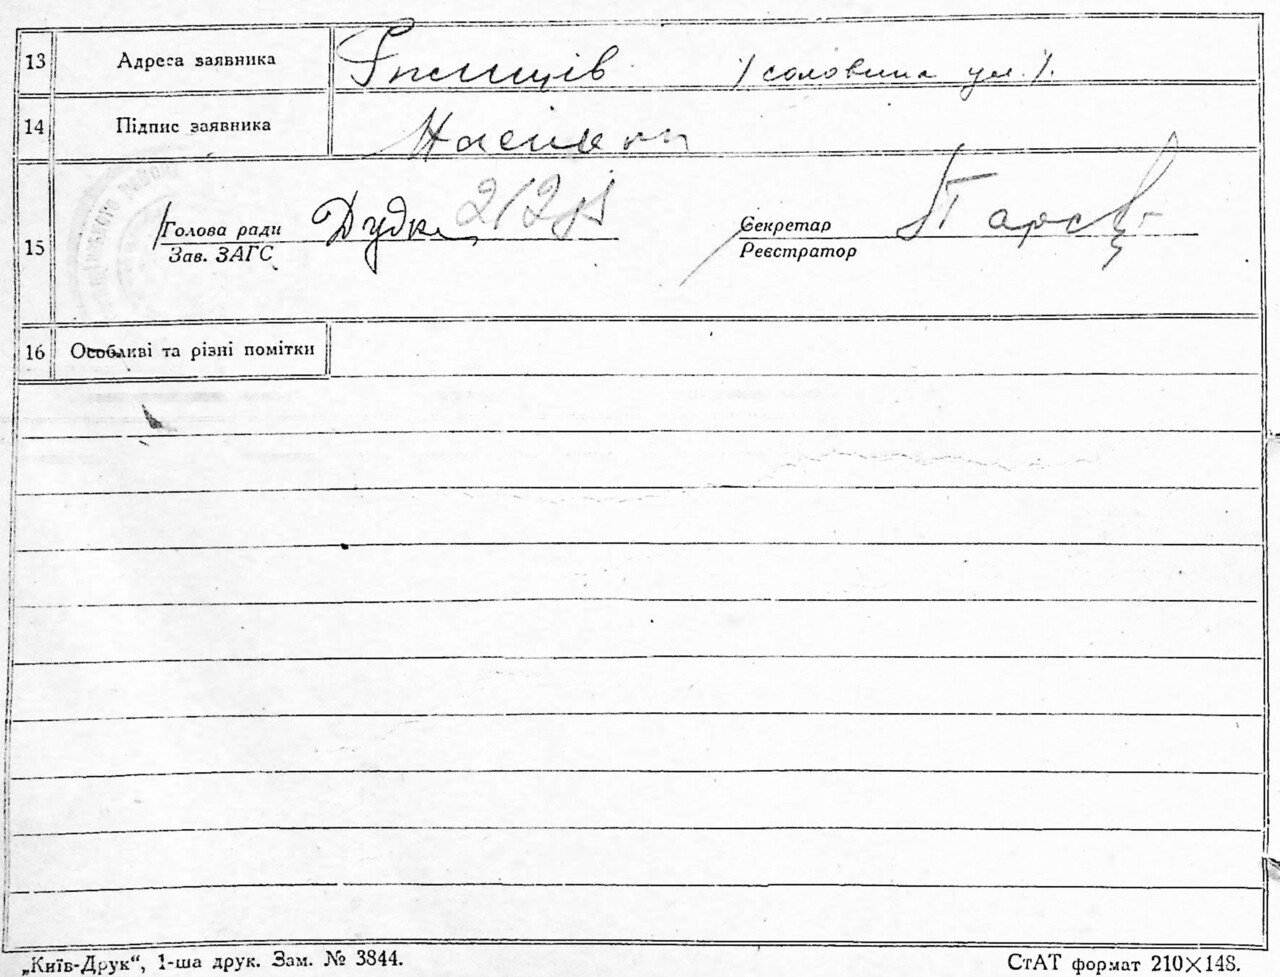 13 Адреса заявника (соловина ул.).
14 Підпис заявника
15 Голова ради Дудка Секретар
Зав. ЗАГС Реєстратор
16 Особливі та різні помітки
„Київ-Друк“, 1-ша друк. Зам. № 3844. СтАТ формат 210×148.